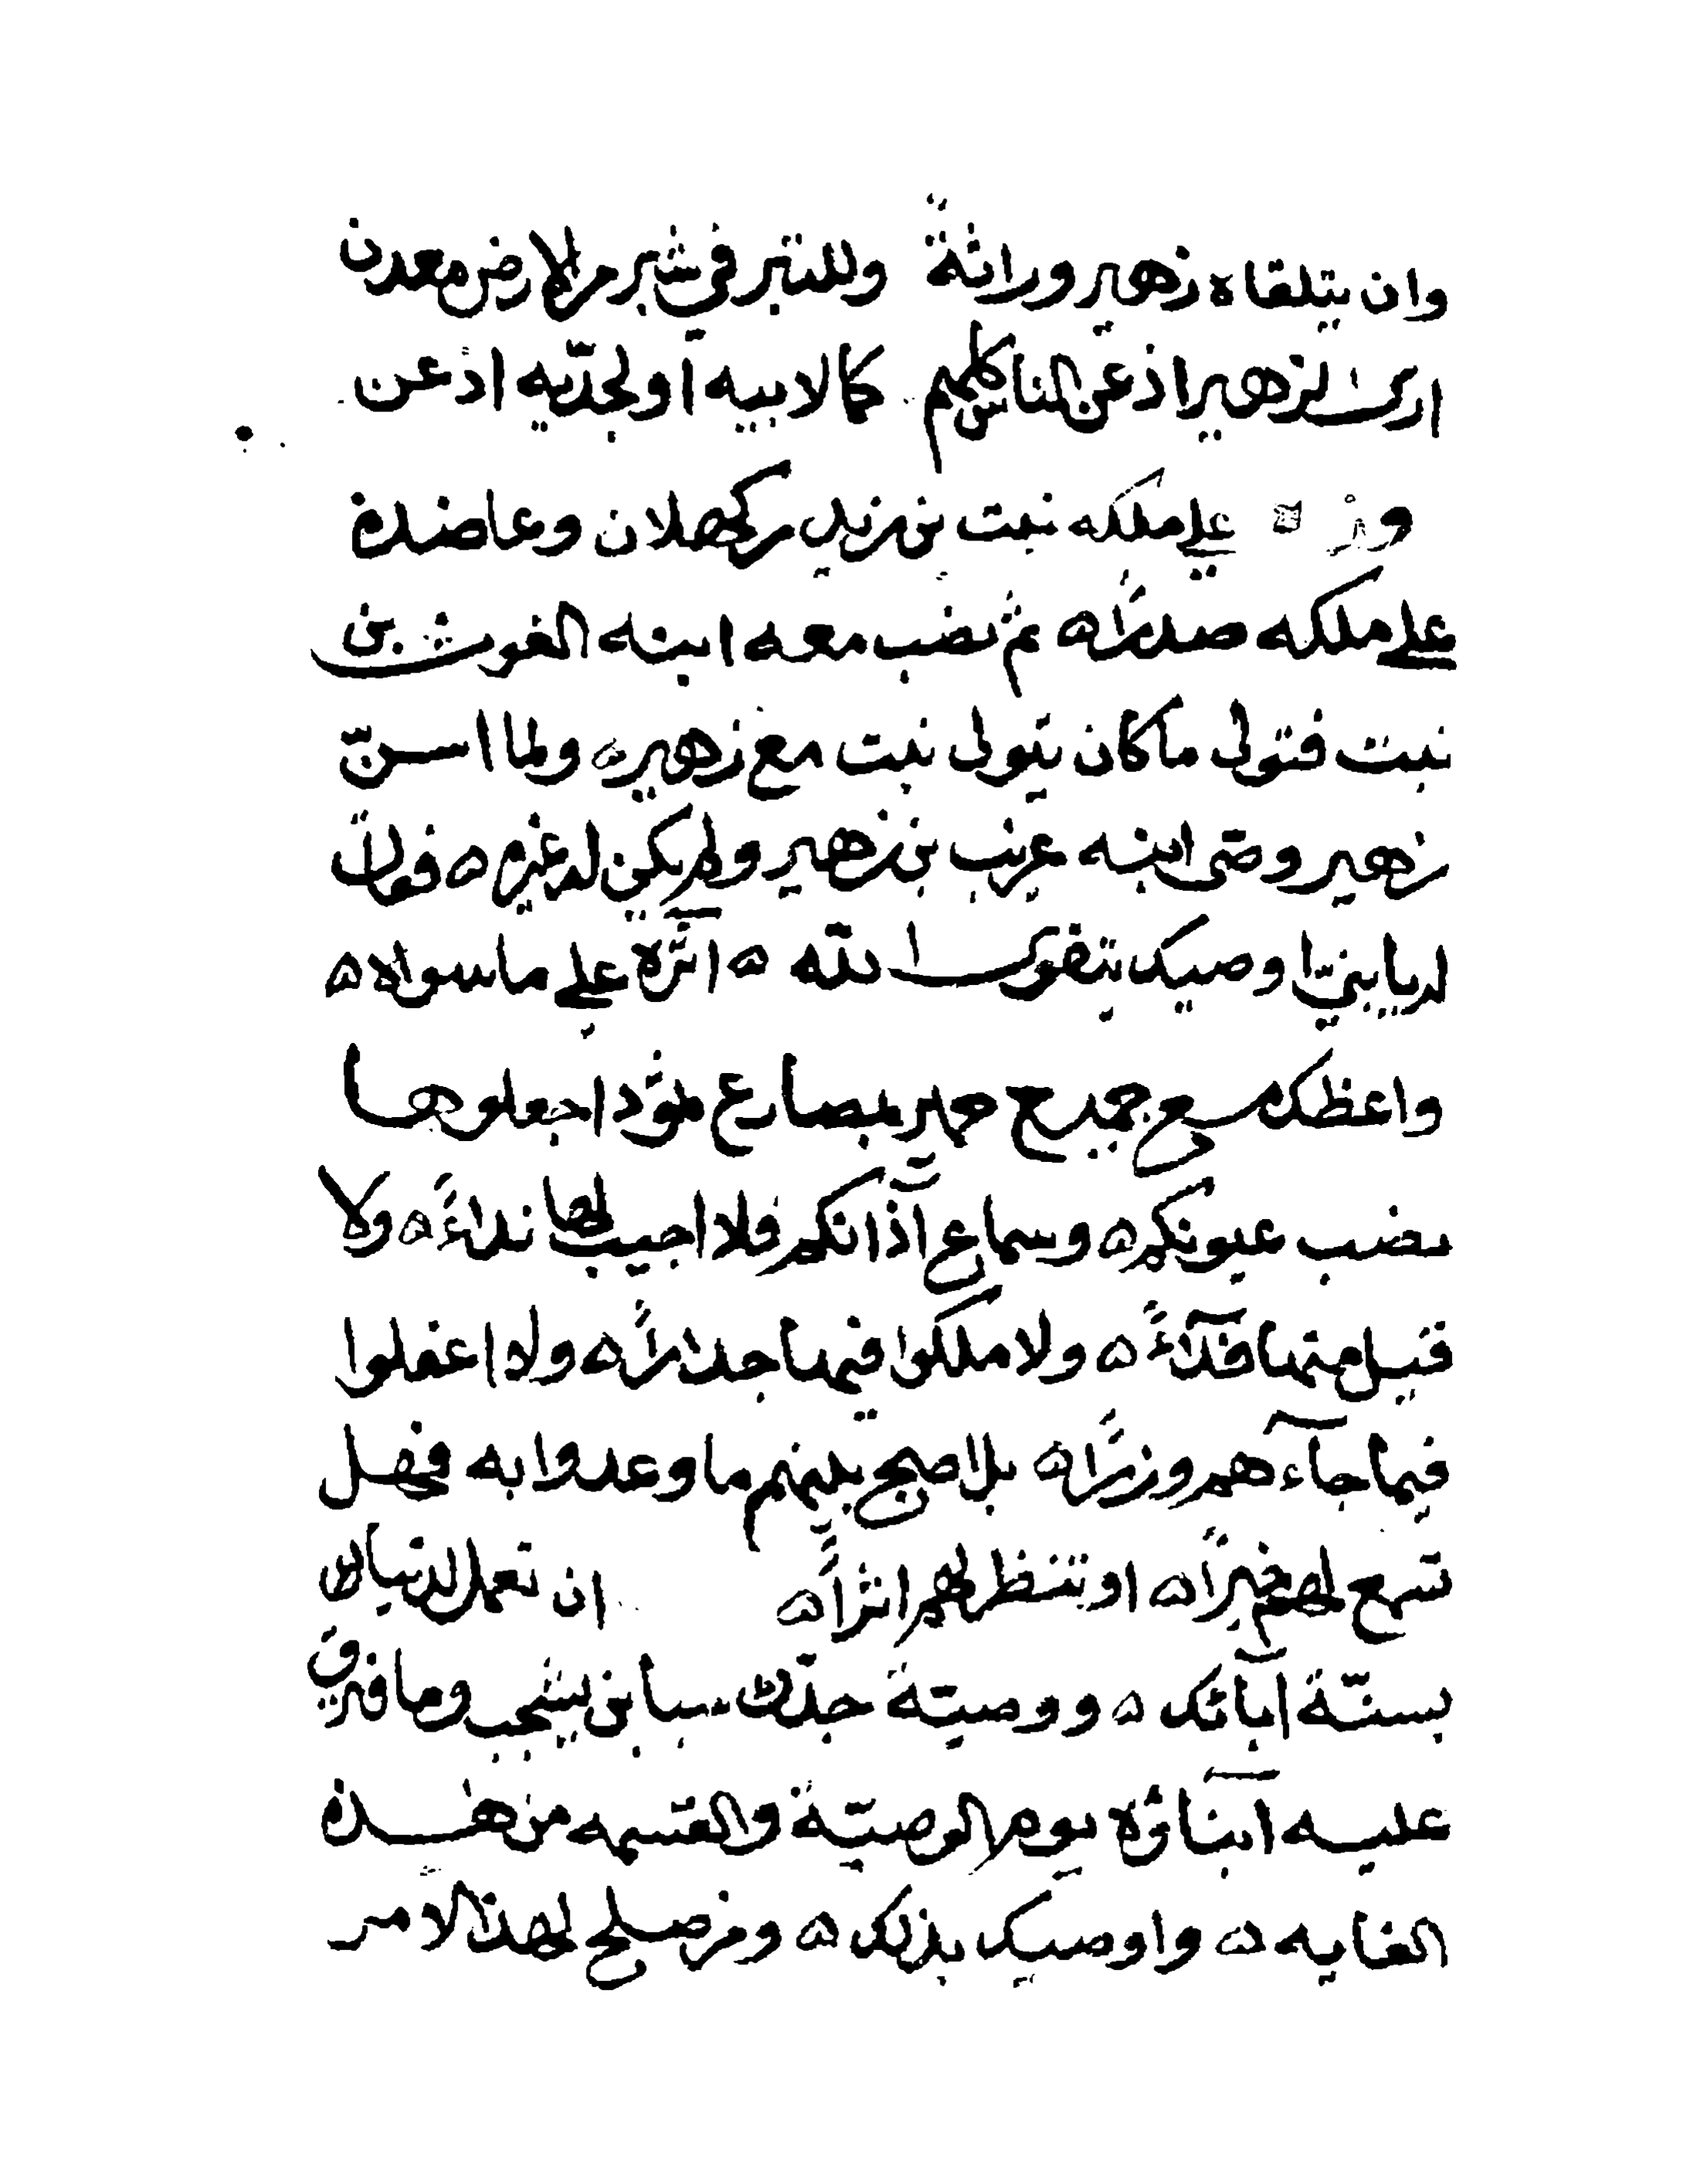 وان يتلقاه زهير وراثةً وللتبر في شبر من الارض معدن
ارى لزهير اذعن الناس كلهم كما لابيه او لجدّيه اذعن
و على ملكه نبت بن زيد بن كهلان وعاضده
على ملكه صدراً ه ثم نصب معه ابنه الغوث بن
نبت فتولى ما كان يتولى نبت مع زهير ه ولما اسنّ
زهير وصّى ابنه عريب بن زهير ولم يكن له غيره فقال
له يا بنيّ اوصيك بتقوى الله ه آثره على ما سواه ه
واعظك مع جميع حمير بمصارع ثمود اجعلوها
نصب عيونكم ه وسماع آذانكم فلا اجيب لها نداءً ه ولا
قبل منها فدآءً ه ولا ملكوا فيها جداراً ه ولا اغفلوا
فيما جآءهم وزراً ه بل اصبح بدمنهم ما وعدوا به فهل
تسمع لهم خبراً ه او تنتظر لهم اثراً ه ان تعمل
بسنّة آبائك ه ووصيّة جدّك سبا بن يشجب وما فرق
عليه ابناؤه يوم الوصيّة والقسمه من هذه
الغايه ه واوصيك بذلك ه ومن صلح لهذا الامر